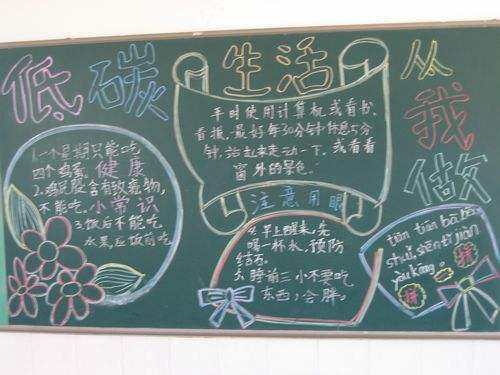 低碳 生活 从我做
1.一个星期只能吃
四个鸡蛋. 健康
2.鸡屁股含有致毒物,
不能吃. 小常识
3.饭后不能吃
水果,应饭前吃
平时使用计算机或看书、
看报,最好每30分钟休息5分
钟,站起来走动一下,或看看
窗外的景色.
注意用眼
4.早上醒来,先
喝一杯水,预防
结石.
5.睡前三小不要吃
东西,会胖.
tiān tiān bā bēi
shuǐ, shēn tǐ jiàn
kāng.